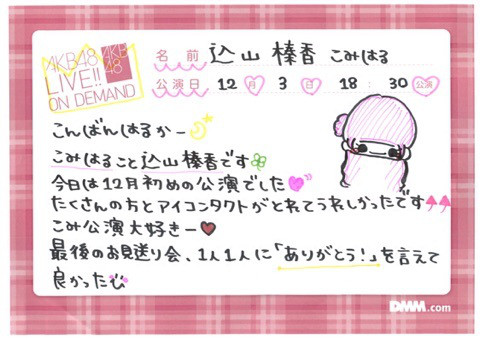 AKB48
LIVE!!
ON DEMAND
AKB
48
名前 込山榛香 こみはる
公演日 12月 3日 18:30 公演
こんばんはるかー
こみはること込山榛香です
今日は12月初めの公演でした
たくさんの方とアイコンタクトがとれてうれしかったです
こみ公演大好きー
最後のお見送り会、1人1人に「ありがとう!」を言えて
良かった
DMM.com